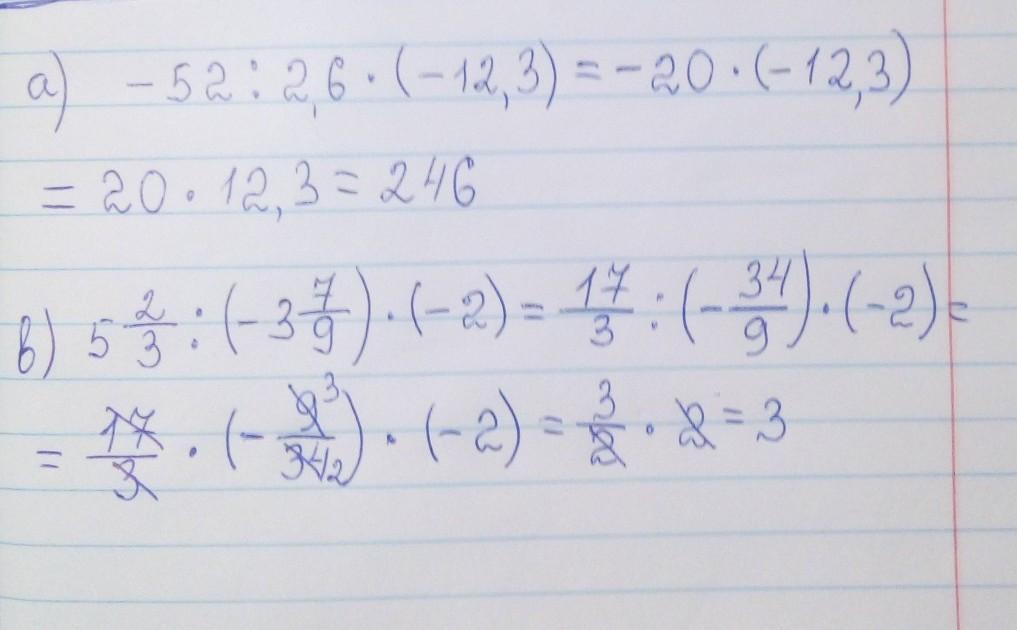 а) -52 : 2,6 · (-12,3) = -20 · (-12,3)
= 20 · 12,3 = 246
в) 5 2/3 : (-3 7/9) · (-2) = 17/3 : (-34/9) · (-2) =
= 17/3 · (-9³/34₂) · (-2) = 3/2 · 2 = 3